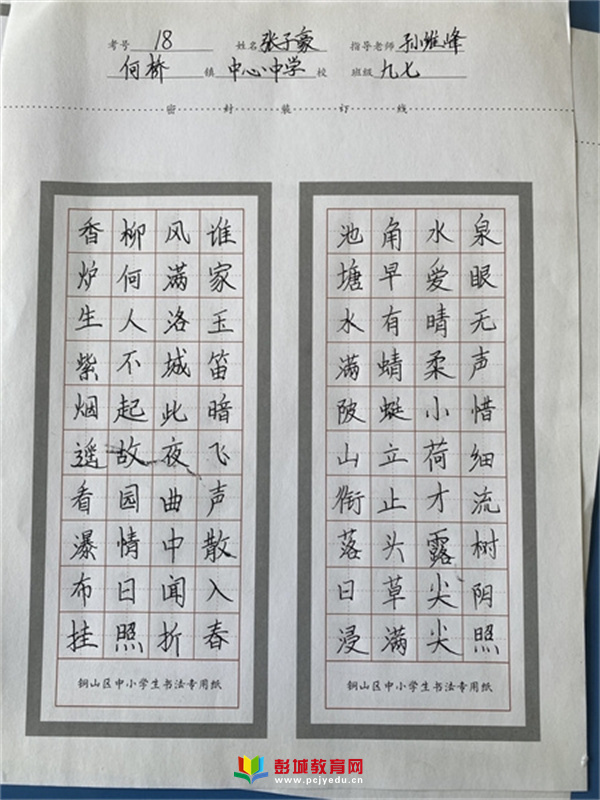 考号 18 姓名 张子豪 指导老师 孙维峰
何桥 镇 中心中学 校 班级 九七
密 封 装 订 线
泉眼无声惜细流树阴照
水爱晴柔小荷才露尖尖
角早有蜻蜓立止头草满
池塘水满陂山衔落日浸
铜山区中小学生书法专用纸
谁家玉笛暗飞声散入春
风满洛城此夜曲中闻折
柳何人不起故园情日照
香炉生紫烟遥看瀑布挂
铜山区中小学生书法专用纸
彭城教育网
www.pcjyedu.cn